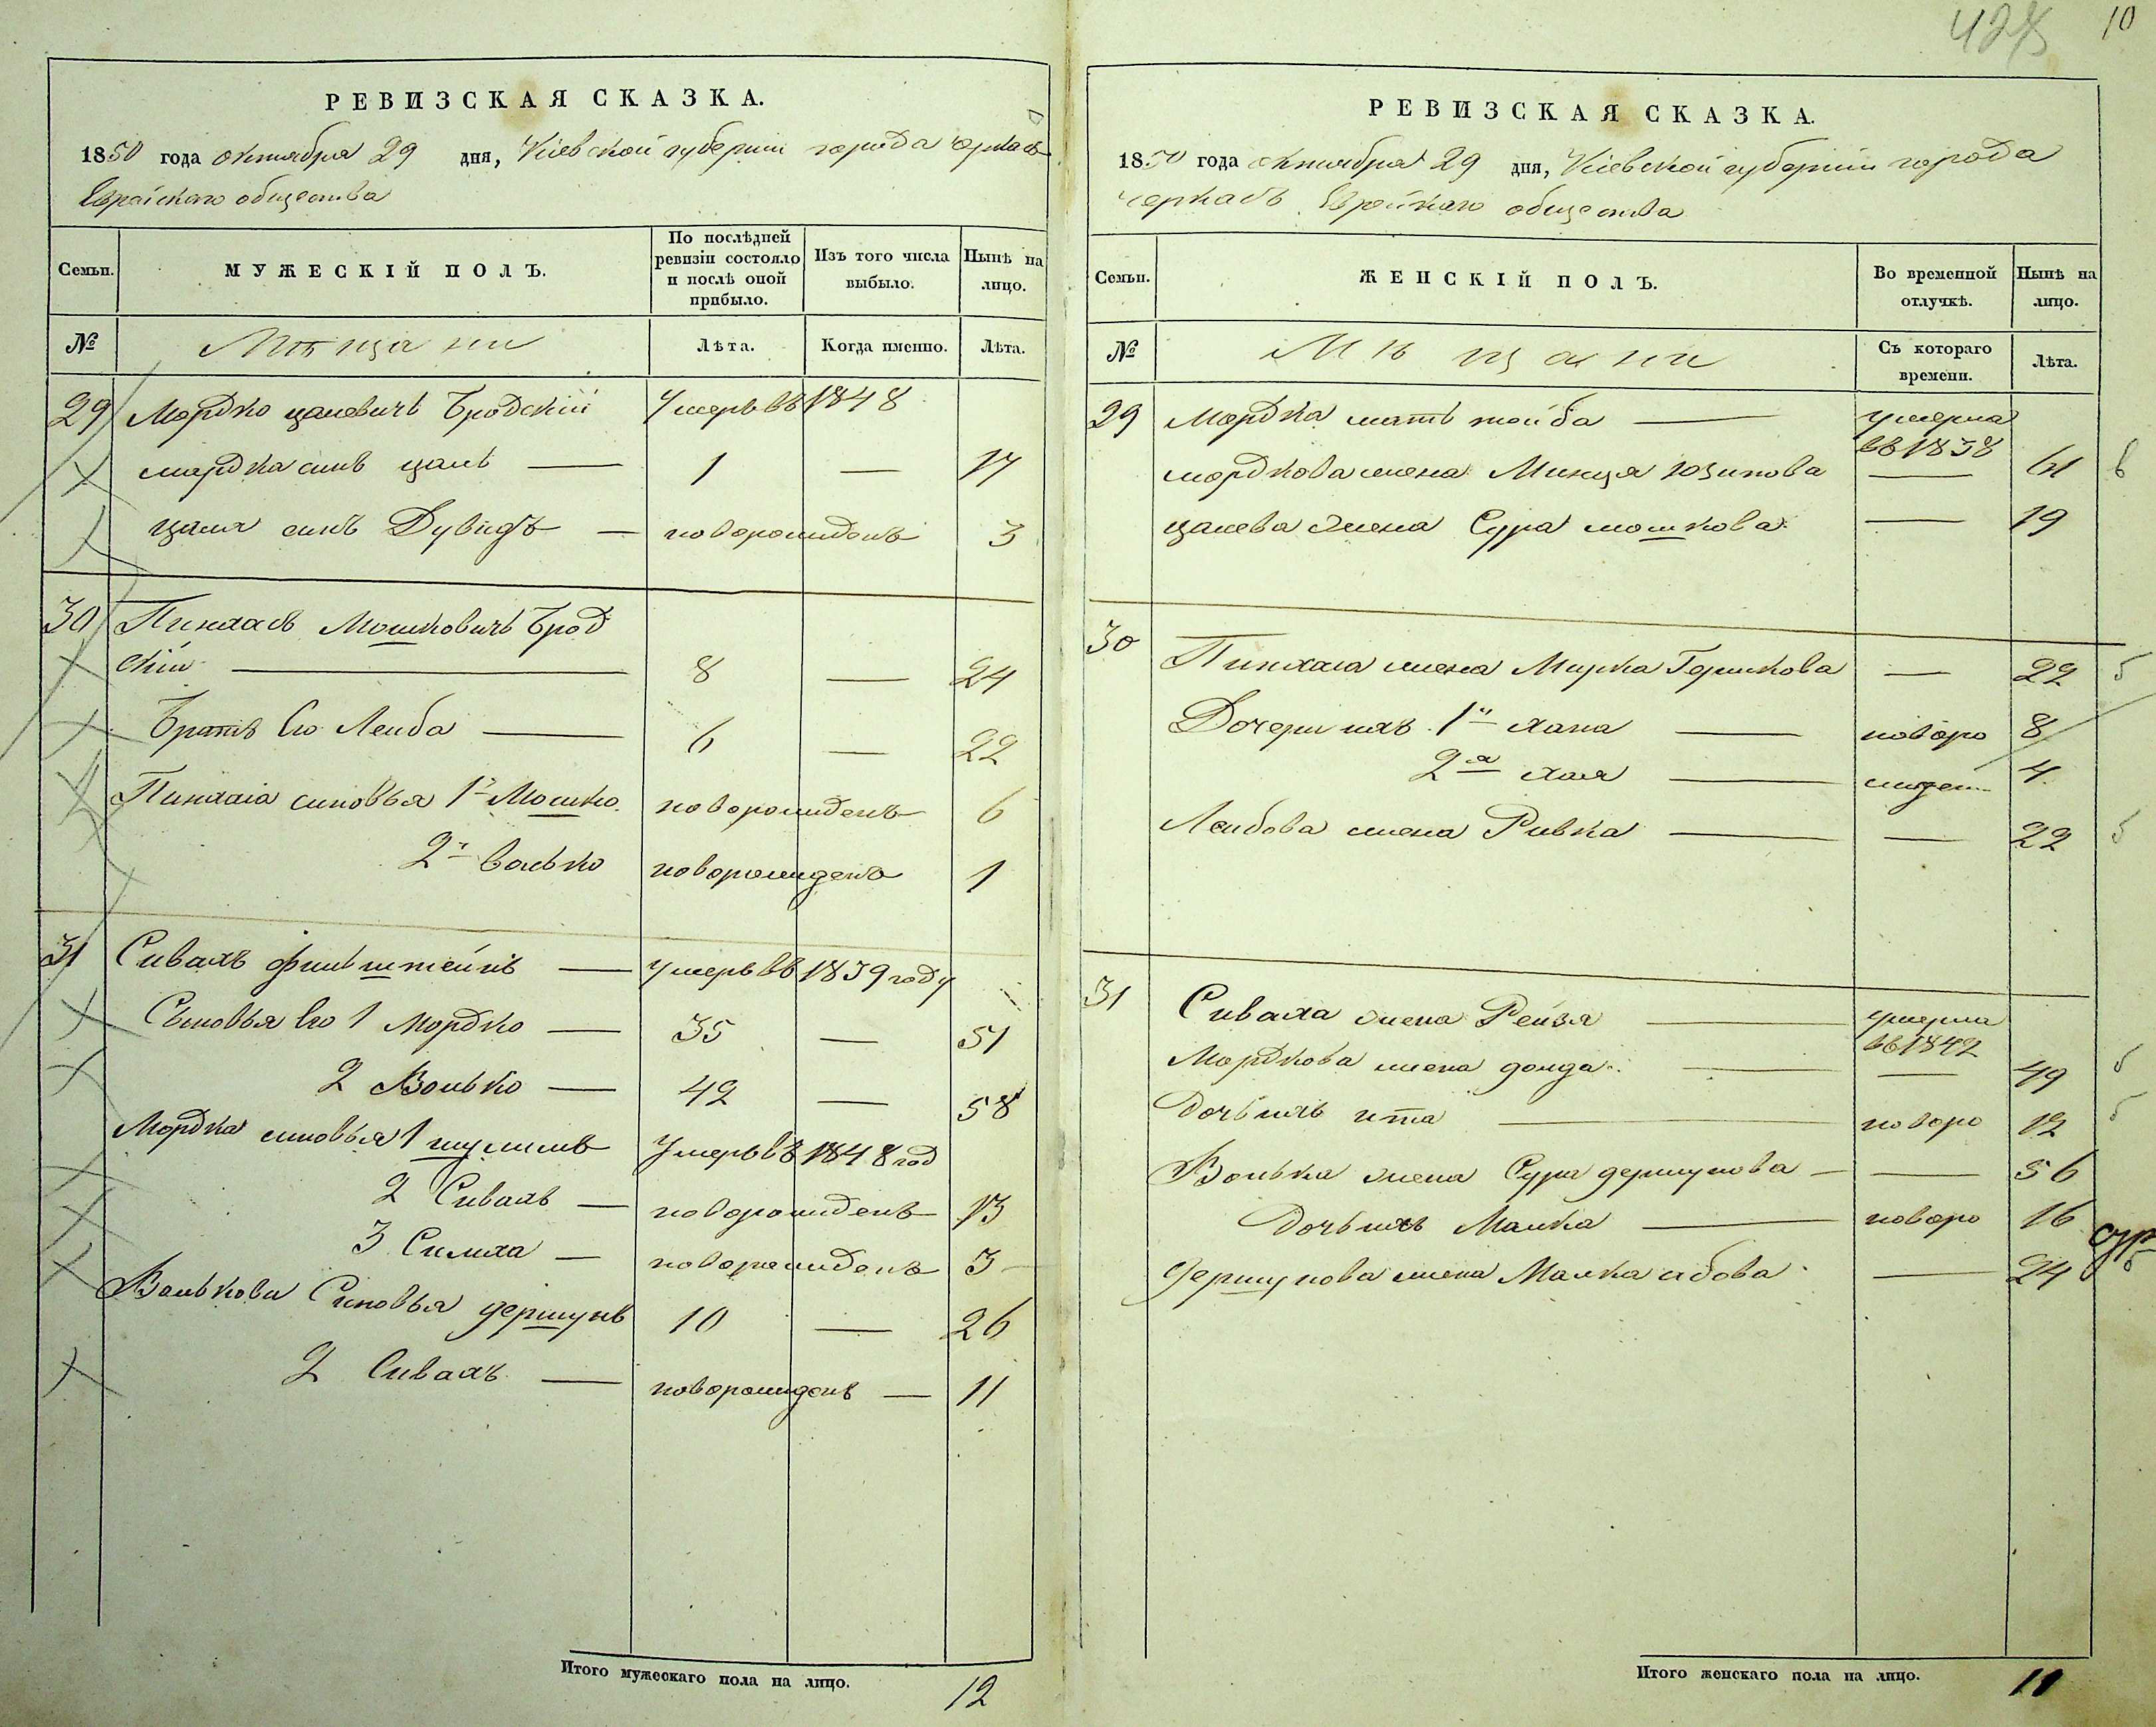 4275 10
РЕВИЗСКАЯ СКАЗКА.
1850 года октября 29 дня, Кіевской губерніи города Черкасъ
Еврейскаго общества
Семьи.
МУЖЕСКІЙ ПОЛЪ.
По послѣдней
ревизіи состояло
и послѣ оной
прибыло.
Изъ того числа
выбыло.
Нынѣ на
лицо.
№
Мѣщани
Лѣта.
Когда именно.
Лѣта.
29 Мордко цалевичъ Бродскій Умеръ въ 1848
мордка синъ цаль — 1 — 17
цаля синъ Дувидъ — новорожденъ 3
30 Пинхасъ Мошковичъ Брод
скій — 8 — 24
Братъ Его Лейба — 6 — 22
Пинхаса синовья 1й Мошко новорожденъ 6
2й Волько новорожденъ 1
31 Сивахъ финкштейнъ — умеръ въ 1839 году
Сыновья Его 1 Мордко — 35 — 51
2 Волько — 42 — 58
Мордка синовья 1 Умеръ въ 1848 год
2 Сивахъ — новорожденъ 13
3 Симха — новорожденъ 3
Волькови Синовья гершунъ 10 — 26
2 Сивахъ — новорожденъ — 11
Итого мужескаго пола на лицо. 12
РЕВИЗСКАЯ СКАЗКА.
1850 года октября 29 дня, Кіевской губерніи города
черкасъ Еврейскаго общества
Семьи.
ЖЕНСКІЙ ПОЛЪ.
Во временной
отлучкѣ.
Нынѣ на
лицо.
№
Мѣщани
Съ котораго
времени.
Лѣта.
29 Мордка мать тойба — умерла
въ 1838
мордкова жена Минця юзипова — 61 в
цалева жена Сура мошкова — 19
30 Пинхаса жена Мирка Гершкова — 22 б
Дочери ихъ 1я хана — новоро 8
2я хая — жден 4
Лейбова жена Ривка — — 22 б
31 Сиваха жена Рейзя — умерла
въ 1842
Мордкова жена — — 49 б
Дочь ихъ ита — новоро 12 б
Волька жена Сура гершунова — — 56
Дочь ихъ Малка — новоро 16
гершунова жена Малка — 24 б
Итого женскаго пола на лицо. 11